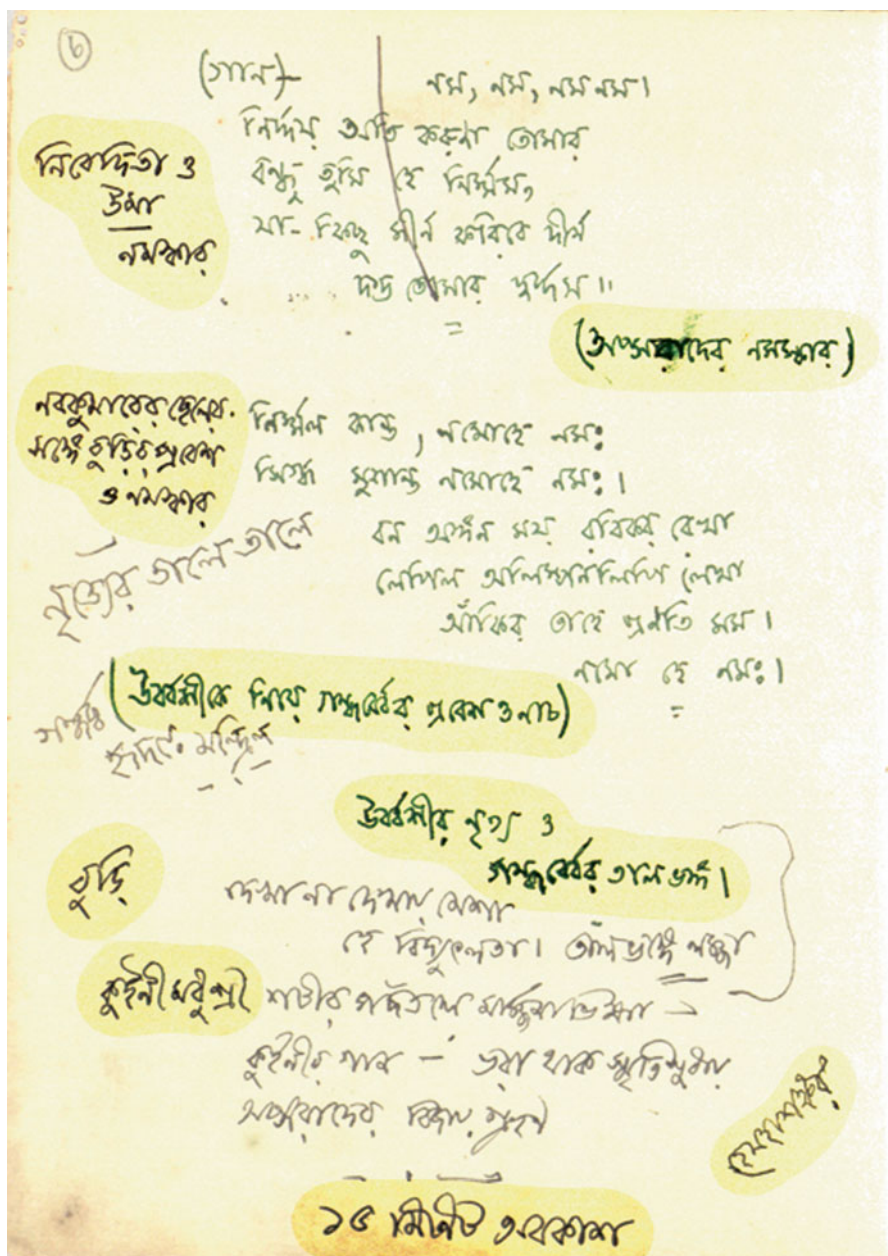 ৬
(গান)— নম, নম, নম নম।
নির্দ্দয় অতি করুণা তোমার
বন্ধু তুমি হে নির্ম্মম,
যা- কিছু জীর্ণ করিবে দীর্ণ
দণ্ড তোমার দুর্দ্দম ॥
নিবেদিতা ও
উমা
নমস্কার
(অপ্সরাদের নমস্কার)
নবকুমারের ছেলের
সঙ্গে বুড়ির প্রবেশ
ও নমস্কার
নির্ম্মল কান্ত, নমোহে নমঃ
স্নিগ্ধ সুশান্ত নমোহে নমঃ।
বন অঙ্গন ময় রবিকর রেখা
লেপিল আলিম্পনলিপি লেখা
আঁকিব তাহে প্রণতি মম।
নমো হে নমঃ।
নৃত্যের তালে তালে
(উর্ব্বশীকে নিয়ে গন্ধর্ব্বের প্রবেশ ও নাচ)
হৃদয়ে মন্দ্রিল
উর্ব্বশীর নৃত্য ও
গন্ধর্ব্বের তাল ভঙ্গ।
বুড়ি
দেখা না দেখায় মেশা
হে বিদ্যুৎলতা। তালভঙ্গে লজ্জা
কুইনী মধুশ্রী
শচীর পদতলে মার্জ্জনা ভিক্ষা —
কুইনীর গান — ভরা থাক স্মৃতিসুধায়
অপ্সরাদের বিদায় গ্রহণ
১৫ মিনিট অবকাশ